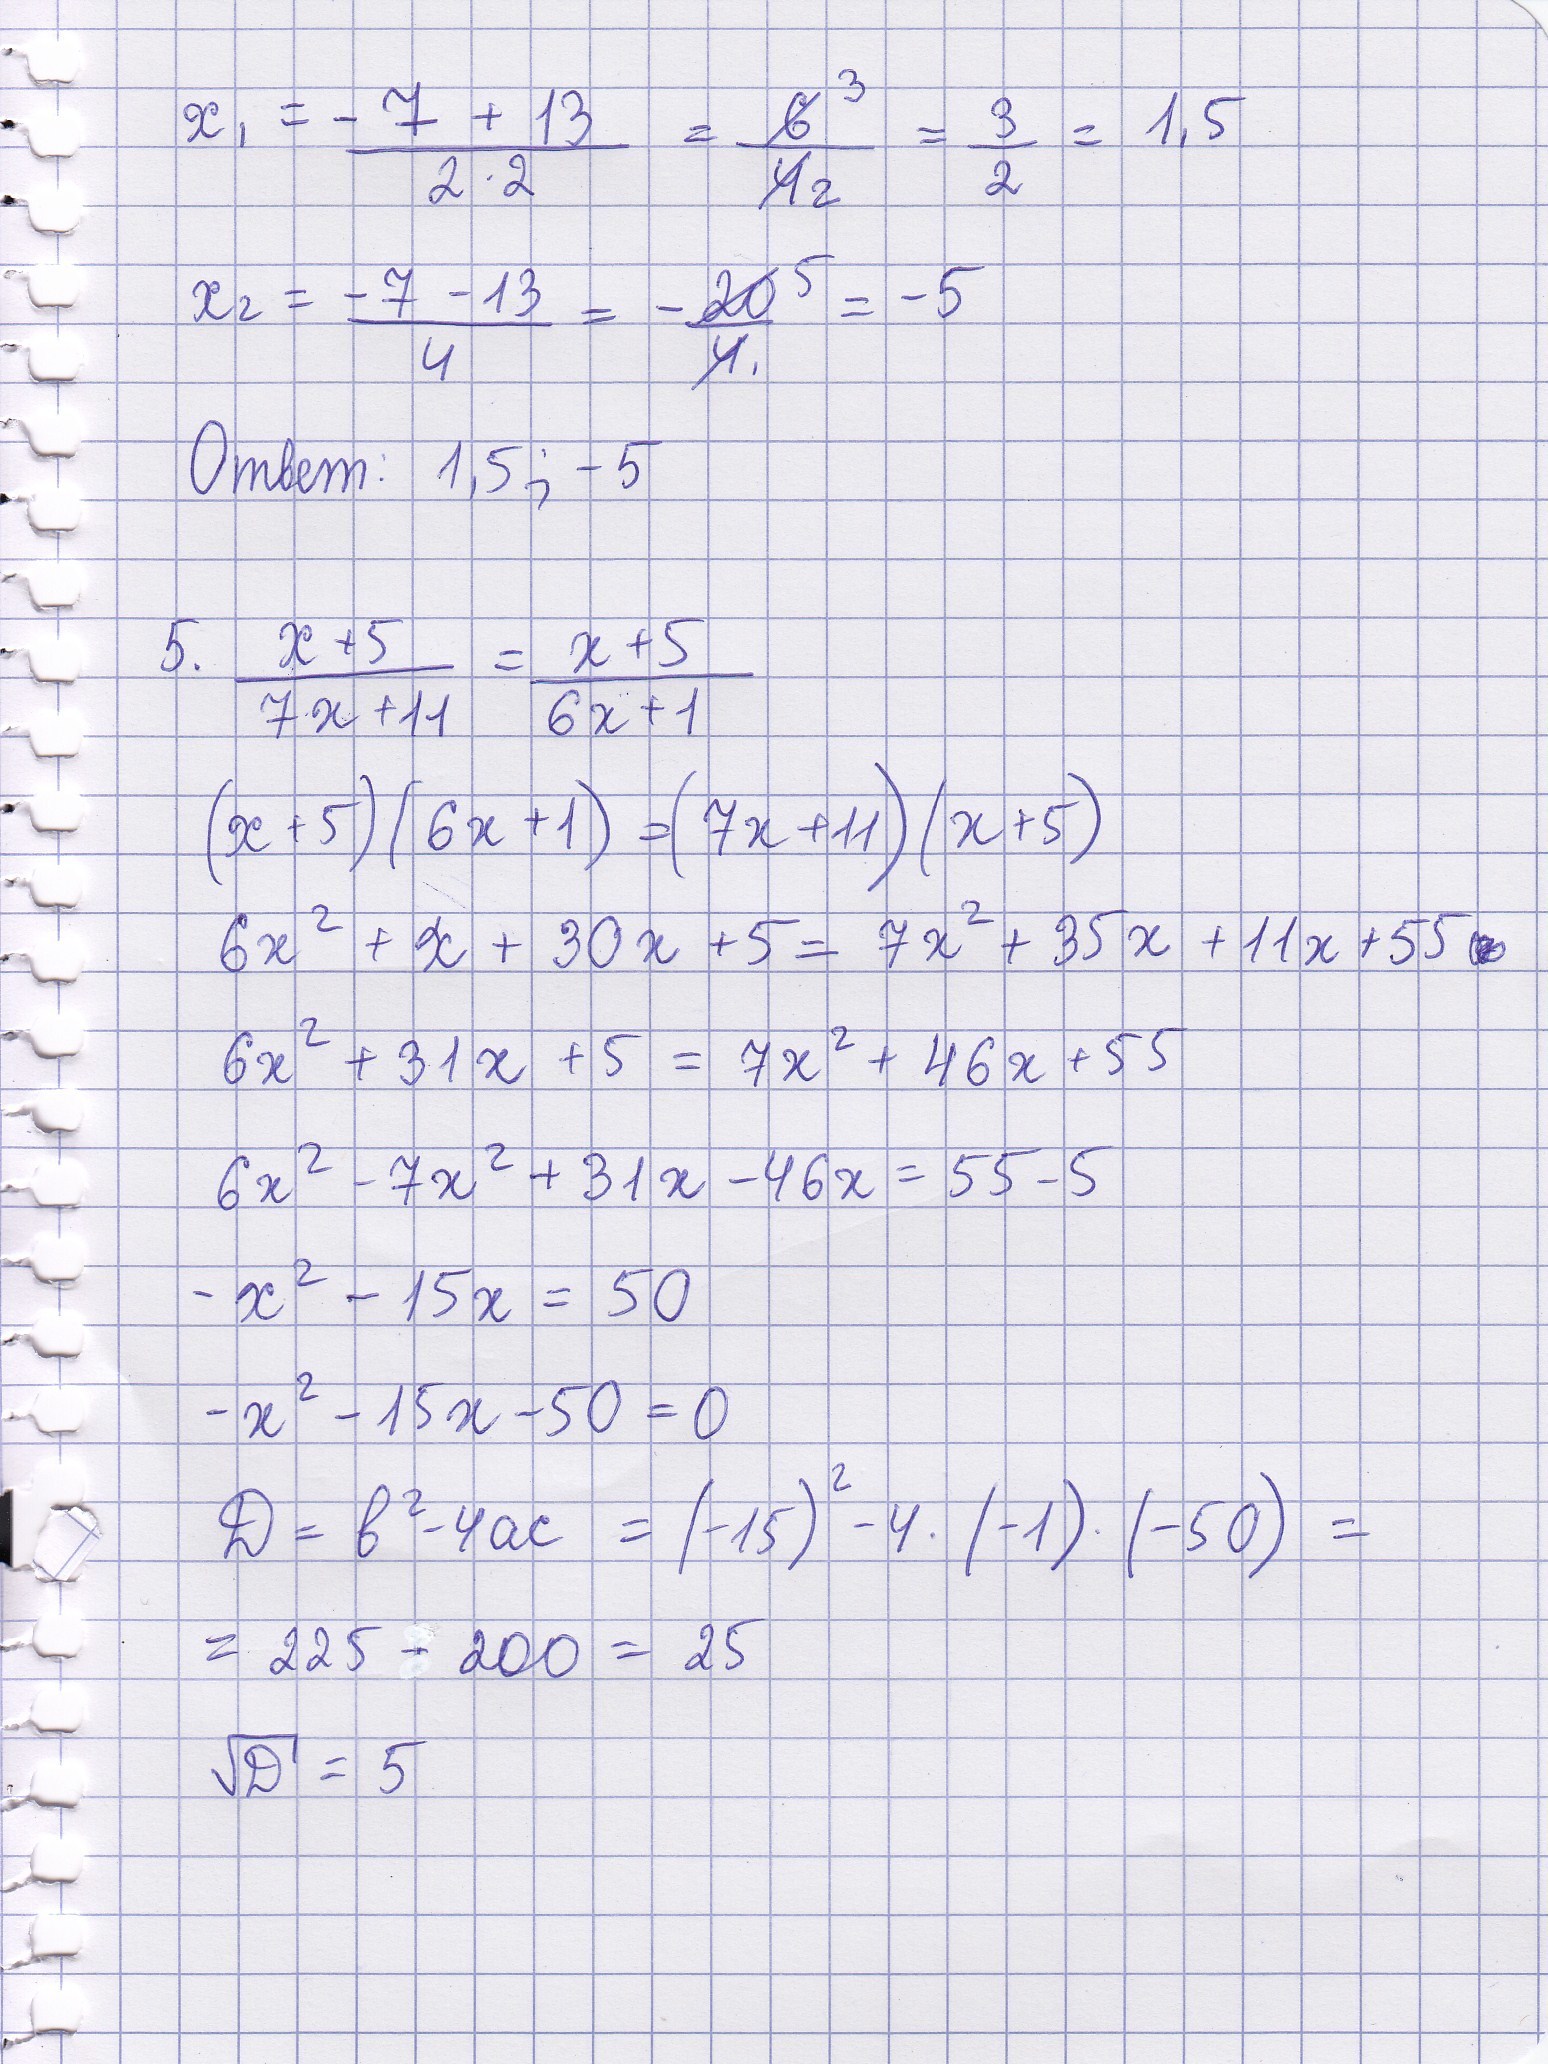 x₁ = (-7 + 13)/(2·2) = 6/4 = 3/2 = 1,5
x₂ = (-7 - 13)/4 = -20/4 = -5
Ответ: 1,5; -5
5. (x+5)/(7x+11) = (x+5)/(6x+1)
(x+5)(6x+1)=(7x+11)(x+5)
6x² + x + 30x + 5 = 7x² + 35x + 11x + 55
6x² + 31x + 5 = 7x² + 46x + 55
6x² - 7x² + 31x - 46x = 55 - 5
-x² - 15x = 50
-x² - 15x - 50 = 0
D = b² - 4ac = (-15)² - 4·(-1)·(-50) =
= 225 - 200 = 25
√D = 5